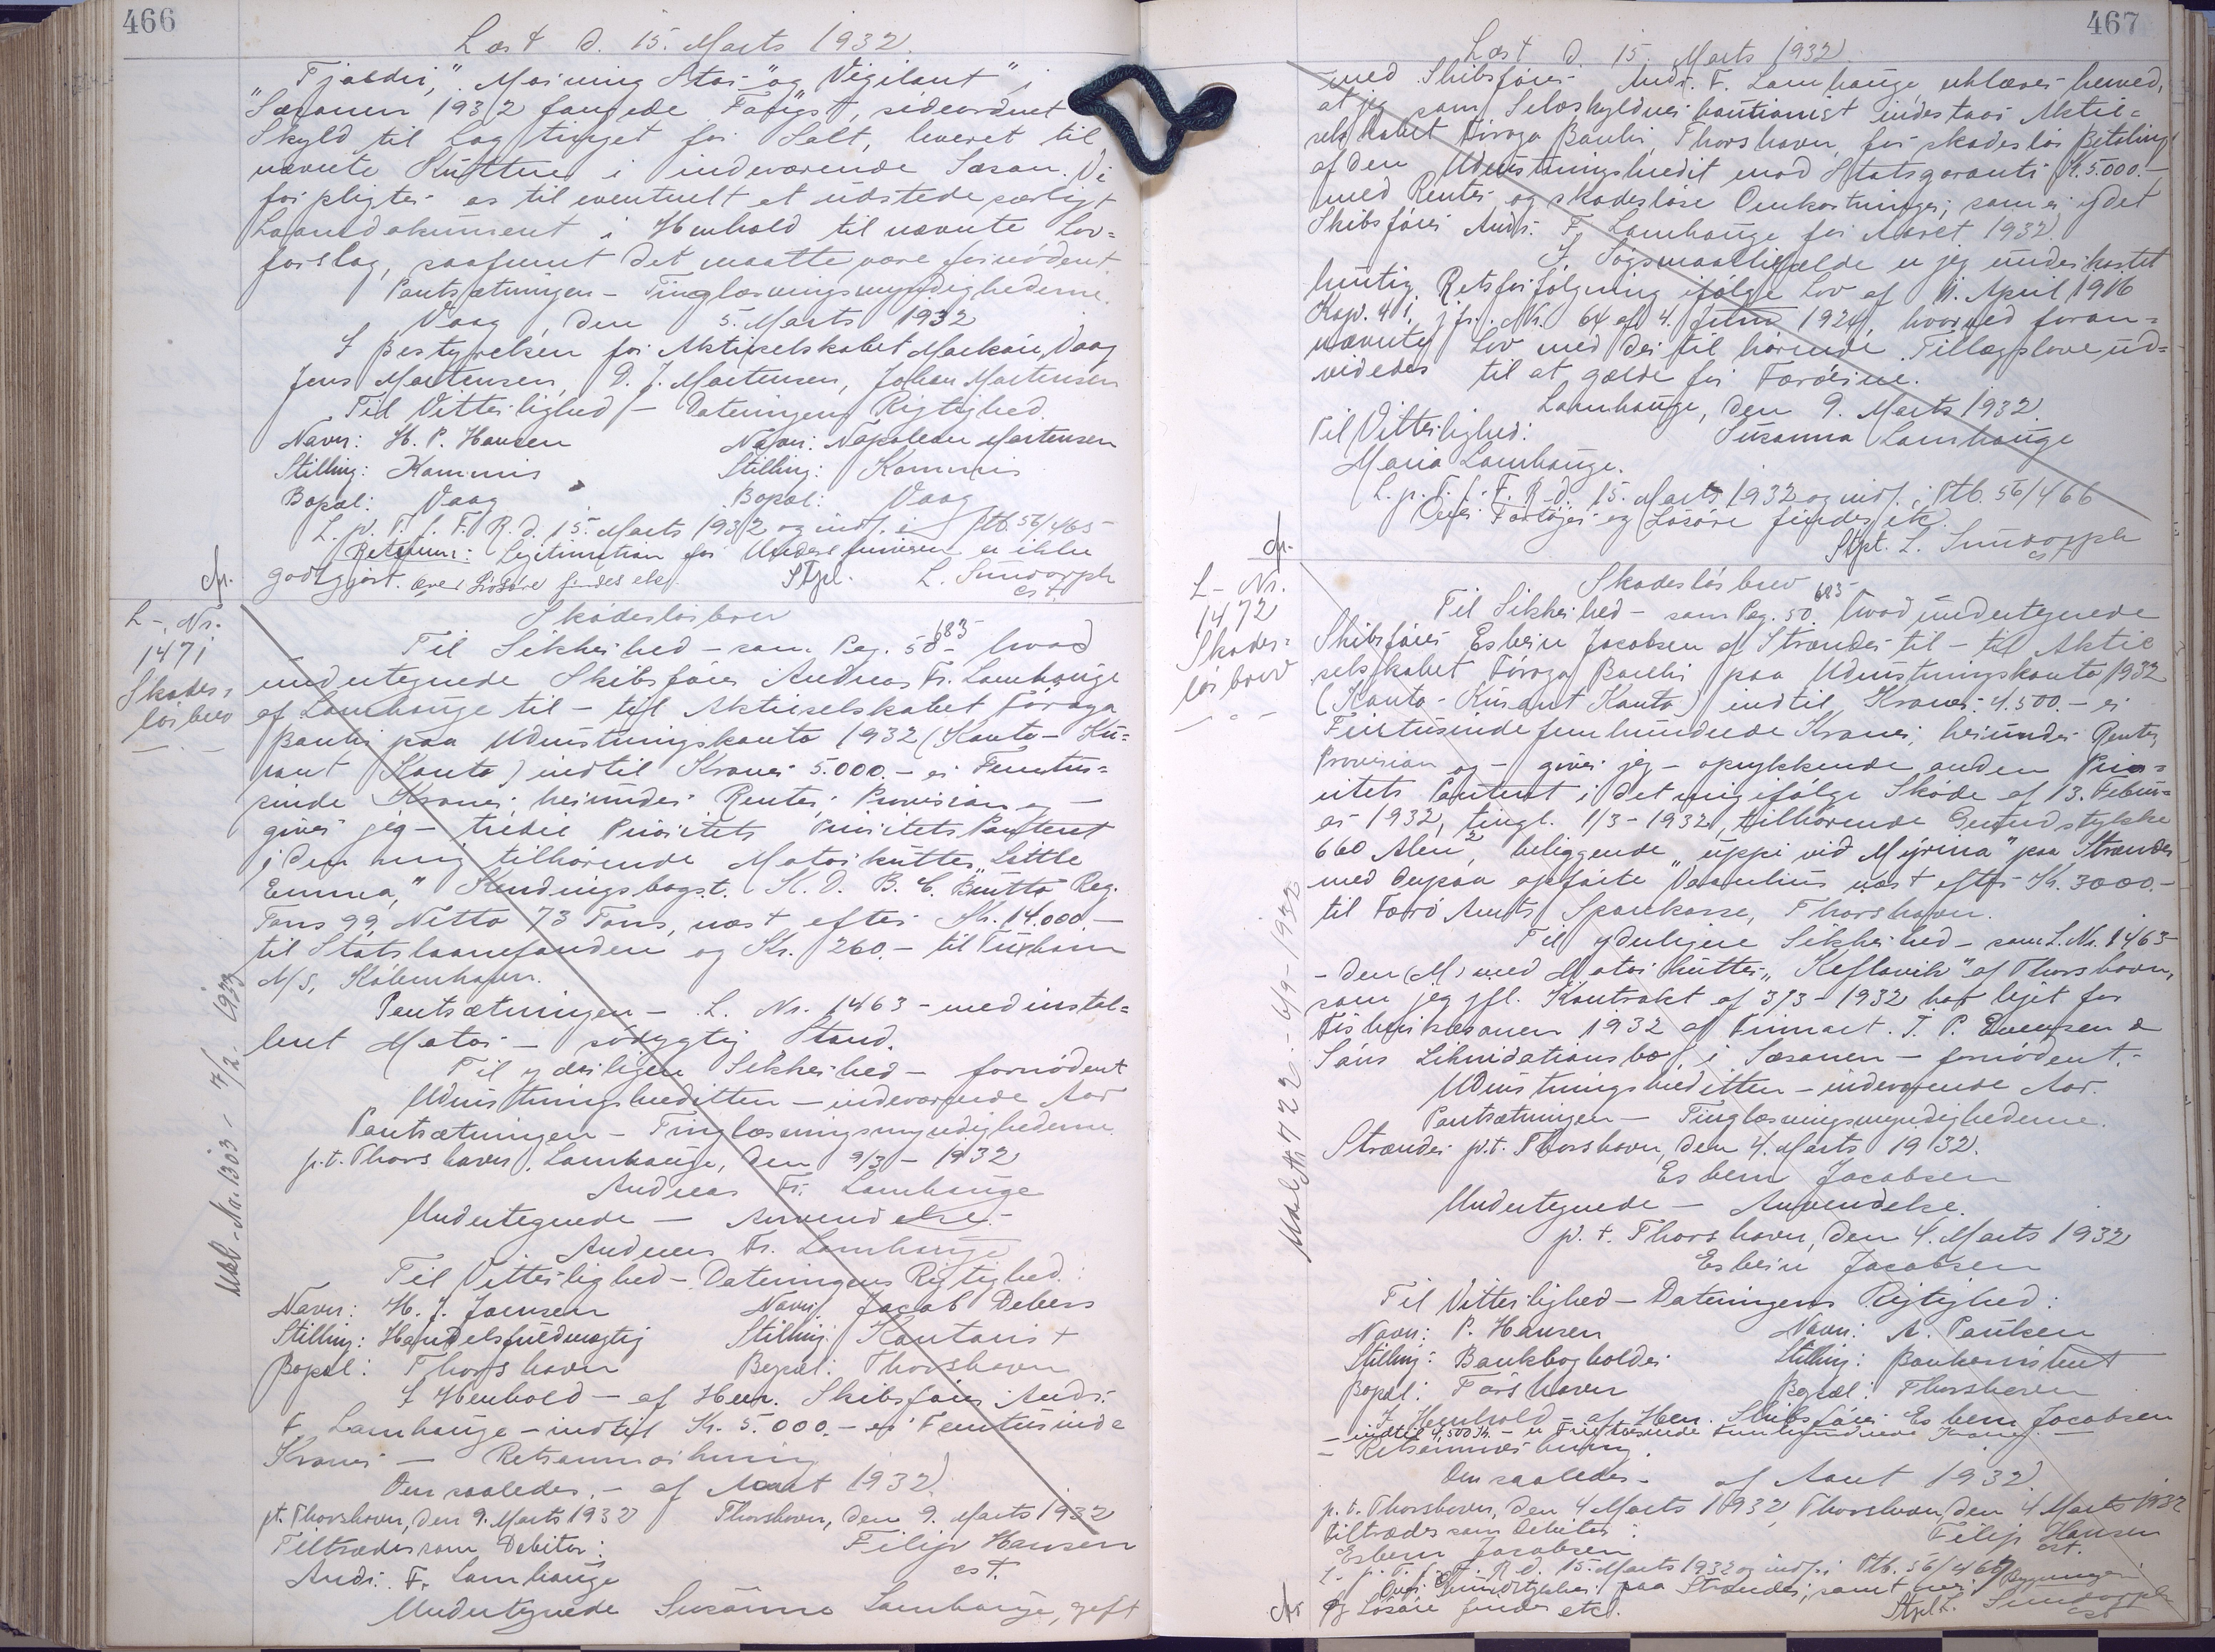 466
Læst d. 15. Marts 1932.
Fjaldur," "Morning Star" og "Vigilant" i
Sæsonen 1932 fangede Fangst, sideordnet
Skyld til Lagtinget for Salt, leveret til
nævnte Kuttere i indeværende Sæson. Vi
forpligter os til eventuelt at udstede særligt
Laanedokument i Henhold til nævnte Lov=
forslag, saafremt det maatte være fornødent.
Pantsætningen - Tinglæsningsmyndighederne.
Vaag, den 5. Marts 1932
I Bestyrelsen for Aktieselskabet Vaag
Jens Mortensen, D. J. Mortensen, Johan Mortensen
Til Vitterlighed - Dateringens Rigtighed.
Navn: H. P. Hansen Navn: Napoleon Mortensen
Stilling: Kommis Stilling: Kommis
Bopæl: Vaag Bopæl: Vaag
L. p. T. f. F. R. d. 15. Marts 1932 og indf. i Ptb. 56/465
Retsanm: Legitimation for Underskriveren er ikke
godtgjort. Over Løsøre findes ek. Stpl. L. Sundorph
cst.
L.-Nr.
1471
Skades=
løsbrev
Skadesløsbrev
Til Sikkerhed - som Pag. 50 683 - hvad
undertegnede Skibsfører Andreas Fr. Lamhauge
af Lamhauge til - til Aktieselskabet Føroya
Banki paa Udrustningskonto 1932 (Konto-Ku=
rant Konto) indtil Kroner 5.000.- er Femtus=
sinde Kroner herunder Renter, Provision og -
giver jeg - tredie Prioritets Prioritets Panteret
i den mig tilhørende Motorkutter "Little
Emma," Kendingsbogst. N. D. B. C. Brutto Reg.
Tons 99, Netto 73 Tons, næst efter Kr. 14.000.-
til Statslaanefonden og Kr. 260.- til Tuxham
A/S, København.
Pantsætningen - L. Nr. 1463 - med instal=
leret Motor - sødygtig Stand.
Til yderligere Sikkerhed - fornødent
Udrustningskreditten - indeværende Aar
Pantsætningen - Tinglæsningsmyndighederne.
p.t. Thorshavn, Lamhauge, den 9/3 - 1932
Andreas Fr. Lamhauge
Undertegnede - Anvendelse.
Andreas Fr. Lamhauge
Til Vitterlighed - Dateringens Rigtighed:
Navn: H. J. Joensen Navn: Jacob Debess
Stilling: Handelsfuldmægtig Stilling: Kontorist
Bopæl: Thorshavn Bopæl: Thorshavn
I Henhold - af Herr. Skibsfører Andr.
F. Lamhauge - indtil Kr. 5.000.- er Femtusinde
Kroner - Retsanmærkning
Den saaledes - af Aaret 1932.
pt. Thorshavn, den 9. Marts 1932 Thorshavn, den 9. Marts 1932
Tiltrædes som Debitor: Filip Hansen
cst.
Andr. F. Lamhauge
Undertegnede Susanna Lamhauge, gift
Udsl.-Nr. 1303 - 7/2. 1933
467
Læst d. 15. Marts 1932
med Skibsfører Andr. F. Lamhauge erklærer herved,
at jeg som Selvskyldner kautionist indestaar Aktie=
selskabet Føroya Banki, Thorshavn, for skadesløs Betaling
af den Udrustningskredit mod Statsgaranti Kr. 5.000.-
med Renter og skadesløse Omkostninger, som er ydet
Skibsfører Andr. F. Lamhauge for Aaret 1932.
I Søgsmaalstilfælde er jeg underkastet
hurtig Retsforfølgning ifølge Lov af 11. April 1916
Kap. 41, jfr. Nr. 64 af 4. Juni 1924, hvorved foran=
nævnte Lov med dertil hørende Tillægslove ud=
videdes til at gælde for Færøerne.
Lamhauge, den 9. Marts 1932.
Til Vitterlighed: Susanna Lamhauge
Maria Lamhauge.
L. p. T. f. F. R. d. 15. Marts 1932 og indf. i Ptb. 56/466
Over Fartøjer og Løsøre findes ek.
Stpl. L. Sundorph
cst
L-Nr.
1472
Skades=
løsbrev
Skadesløsbrev
Til Sikkerhed - som Pag. 50. 683 hvad undertegnede
Skibsfører Esbern Jacobsen af Strænder til - til Aktie
selskabet Føroya Banki paa Udrustningskonto 1932
(Konto-Kurant Konto) indtil Kroner 4.500.- er
Firetusinde femhundrede Kroner, herunder Renter,
Provision og - giver jeg - oprykkende anden Prio=
ritets Panteret i det mig ifølge Skøde af 13. Febru=
ar 1932, tingl. 1/3-1932, tilhørende Grundstykke
660 Alen², beliggende "uppi við Mýrina" paa Strænder
med derpaa opførte Vaanhus næst efter Kr. 3000.-
til Færø Amts Sparekasse, Thorshavn.
Til yderligere Sikkerhed - som L. Nr. 1463
- den (M) med Motorkutter "Keflavik" af Thorshavn,
som jeg jfl. Kontrakt af 3/3-1932 har lejet for
Fiskerisæsonen 1932 af Firmaet T. P. Evensen &
Søns Likvidationsbo, i Sæsonen - fornødent.
Udrustningskreditten - indeværende Aar.
Pantsætningen - Tinglæsningsmyndighederne.
Strænder p.t. Thorshavn, den 4. Marts 1932.
Esbern Jacobsen
Undertegnede - Anvendelse.
p. t. Thorshavn, den 4. Marts 1932
Esbern Jacobsen
Til Vitterlighed - Dateringens Rigtighed:
Navn: P. Hansen Navn: A. Poulsen
Stilling: Bankbogholder Stilling: Bankassistent
Bopæl: Tórshavn Bopæl: Thorshavn
I Henhold - af Herr. Skibsfører Esbern Jacobsen
- indtil 4,500 Kr. - er Firetusinde Femhundrede Kroner -
- Retsanmærkning.
Den saaledes - af Aaret 1932.
p. t. Thorshavn, den 4 Marts 1932 Thorshavn, den 4 Marts 1932
tiltrædes som Debitor: Filip Hansen
cst.
Esbern Jacobsen
L. p. T. f. F. R. d. 15. Marts 1932 og indf. i Ptb. 56/467
Over Grundstykker paa Strænder, samt over Bygninger
og Løsøre findes etc. Stpl. L. Sundorph
cst
Udsl. Nr. 722 - 6/9-1932